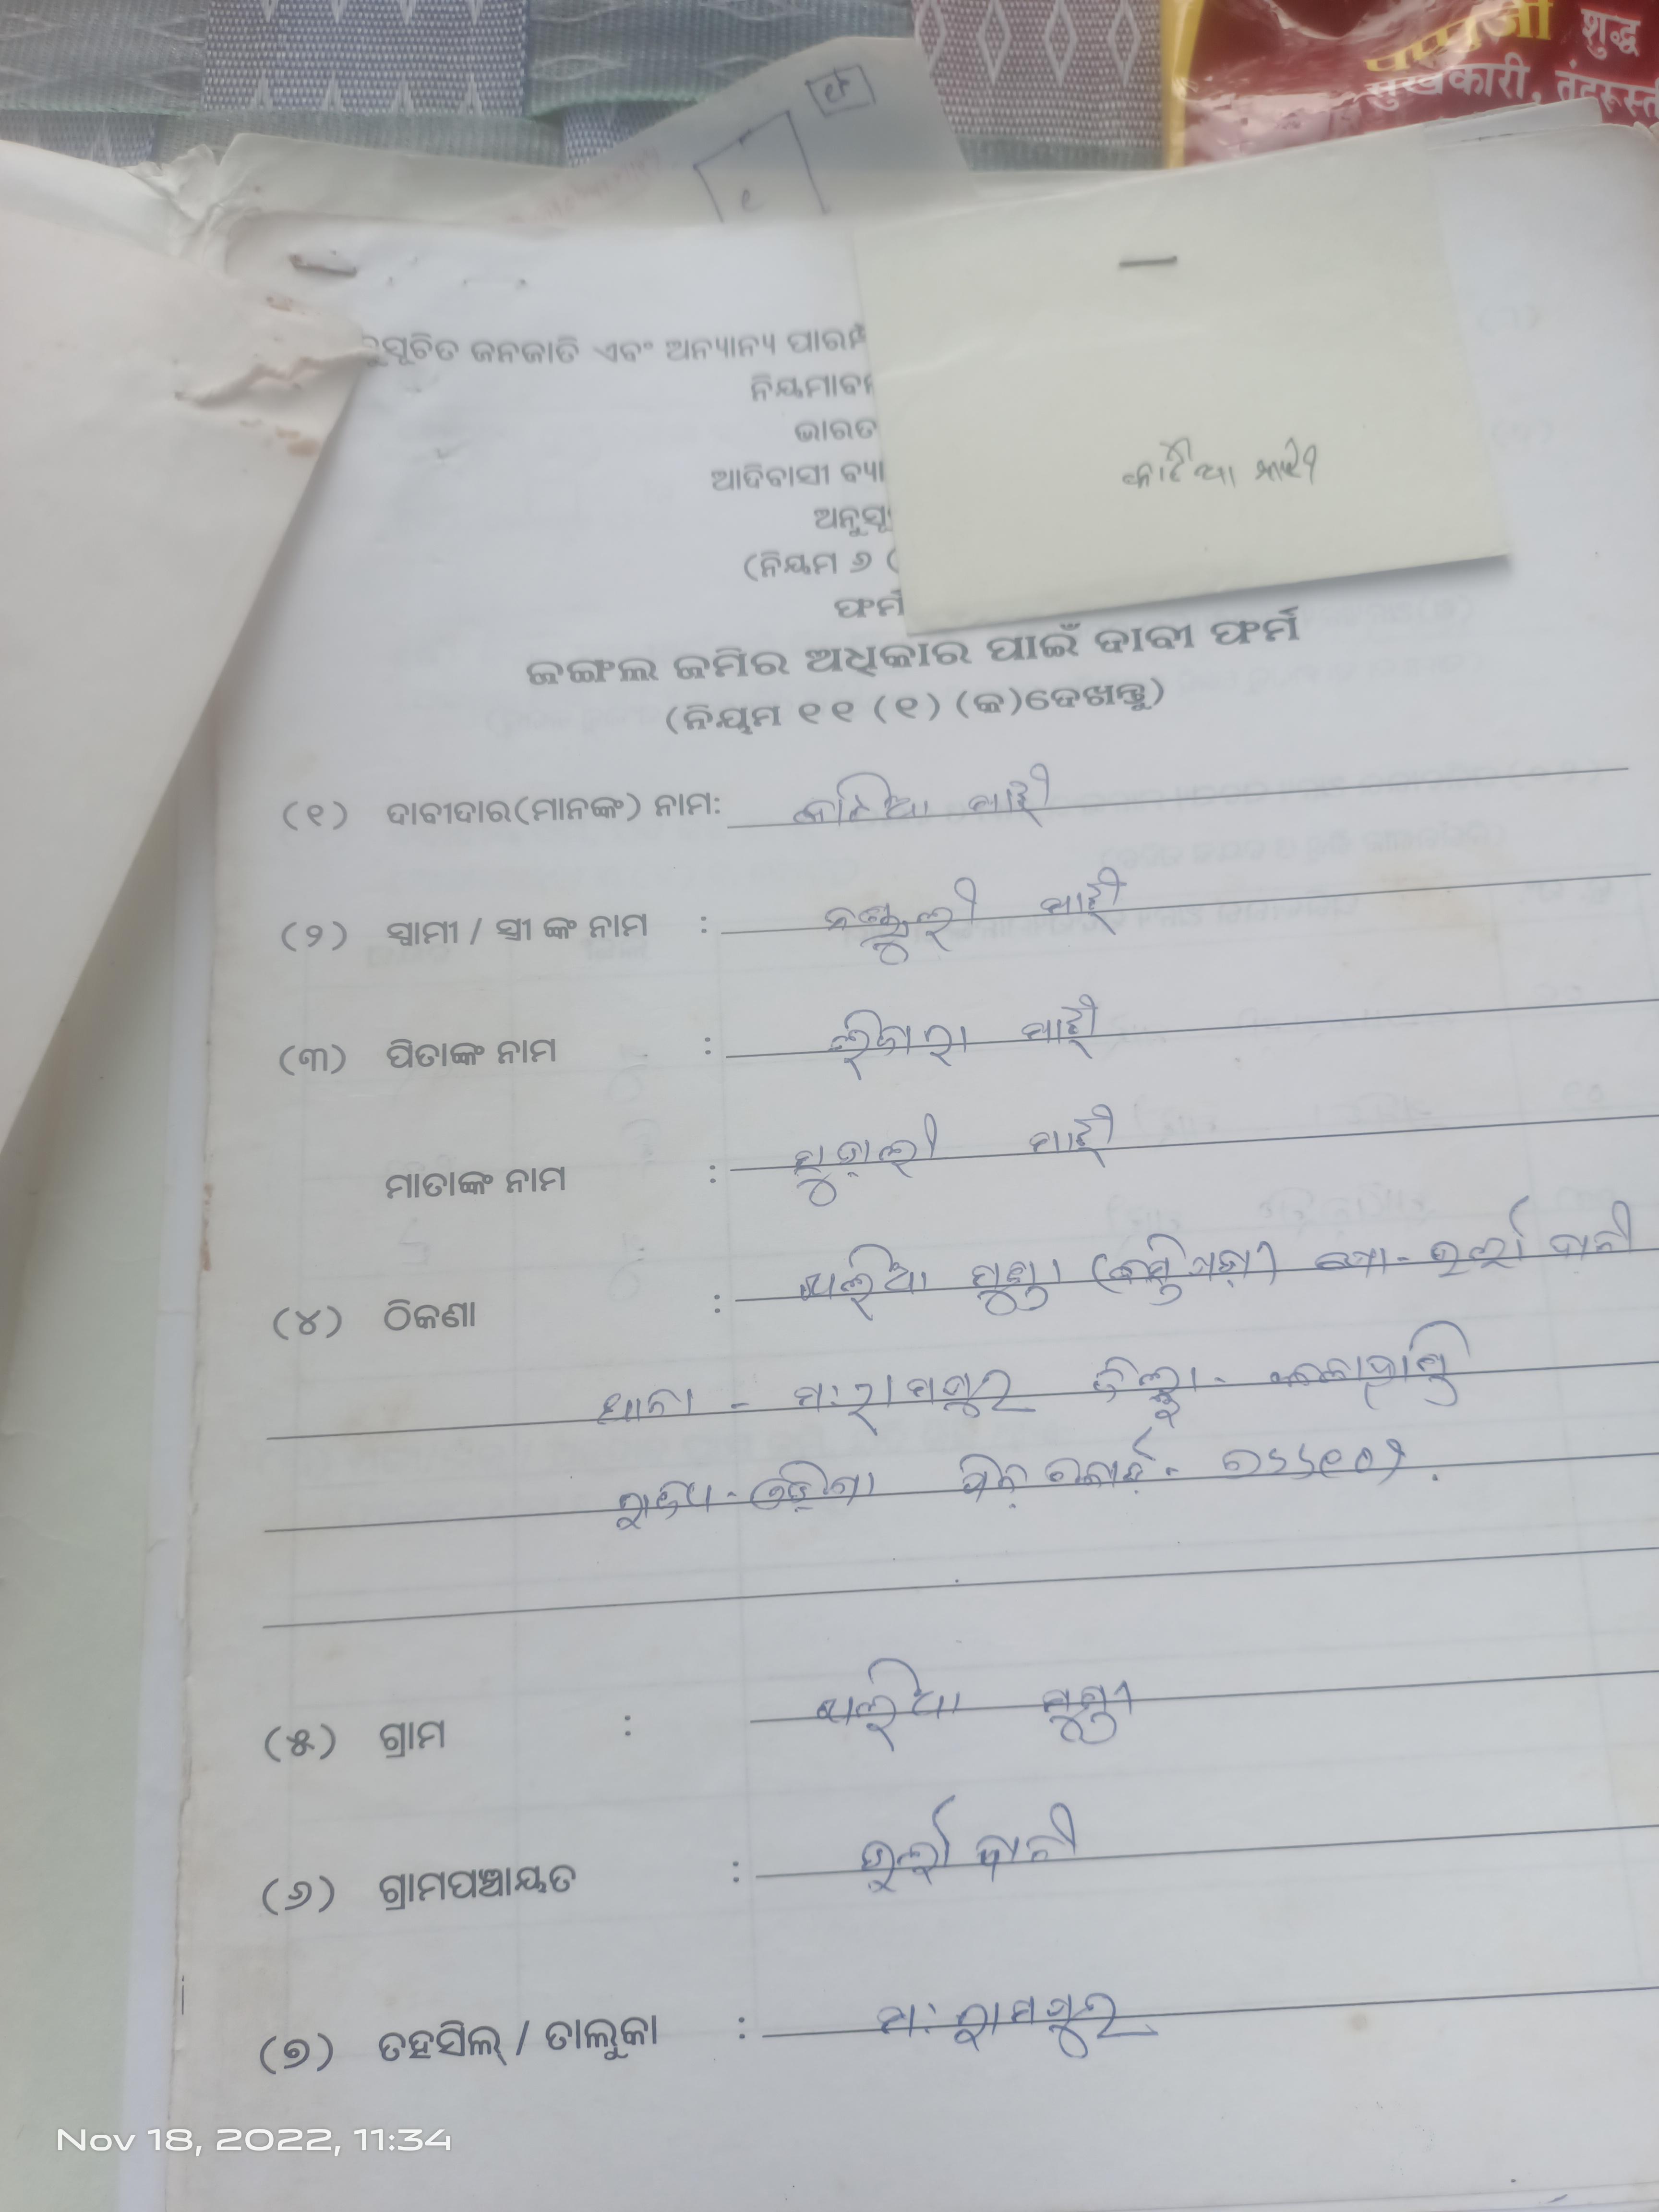 ପପ୍ପୁଜୀ शुद्ध
सुखकारी, तंदरूस्ती
et
e
ନୁସୂଚିତ ଜନଜାତି ଏବଂ ଅନ୍ୟାନ୍ୟ ପାରମ୍ପ
ନିୟମାବଳ
ଭାରତ
ଆଦିବାସୀ ବ୍ୟା
ଅନୁସୂ
(ନିୟମ ୬ (
ଫର୍ମ
କାଟିଆ ମାଝୀ
ଜଙ୍ଗଲ ଜମିର ଅଧିକାର ପାଇଁ ଦାବୀ ଫର୍ମ
(ନିୟମ ୧୧ (୧) (କ)ଦେଖନ୍ତୁ)
(୧) ଦାବୀଦାର(ମାନଙ୍କ) ନାମ: କାଟିଆ ମାଝୀ
(୨) ସ୍ୱାମୀ / ସ୍ତ୍ରୀ ଙ୍କ ନାମ : ମାଝୀ
(୩) ପିତାଙ୍କ ନାମ : ମାଝୀ
ମାତାଙ୍କ ନାମ : ମାଝୀ
(୪) ଠିକଣା : ପୋ- ଉର୍ଲାଦାନୀ
ଥାନା - ମ: ରାମପୁର ଜିଲ୍ଲା - କଳାହାଣ୍ଡି
ରାଜ୍ୟ - ଓଡ଼ିଶା ପିନ୍ କୋଡ୍ - ୭୬୬୧୦୨.
(୫) ଗ୍ରାମ :
(୬) ଗ୍ରାମପଞ୍ଚାୟତ : ଉର୍ଲାଦାନୀ
(୭) ତହସିଲ୍ / ତାଲୁକା : ମ: ରାମପୁର
Nov 18, 2022, 11:34